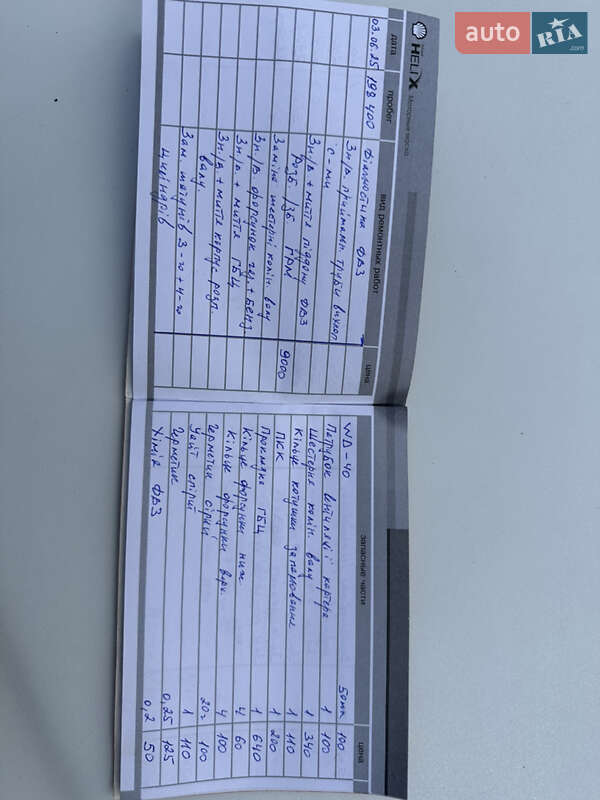 auto RIA .com
SHELL HELIX моторные масла
дата пробег вид ремонтных работ цена
03.06.25 198 400 Діагностика ДВЗ
Зн/в. приймальн труби вихлоп
с-ми
Зн/в + миття піддону ДВЗ
Розб./Зб. ГРМ
Заміна шестерні колін. валу 9000
Зн/в. форсунок газ. + Бенз
Зн/в + миття ГБЦ
Зн/в + миття корпус розп.
валу.
Зам. шатунів 3-го + 4-го
циліндрів
запасные части цена
WD-40 50мл 100
Патрубок вентиляції картера 1 100
Шестерня колін. валу 1 340
Кільце котушки запалювання 1 110
ПКК 1 200
Прокладка ГБЦ 1 640
Кільце форсунки ниж 4 60
Кільце форсунки верх. 4 100
Герметик сірий 20г 100
Уайт спіріт 1 110
Герметик 0,25 125
Хімія ДВЗ 0,2 50